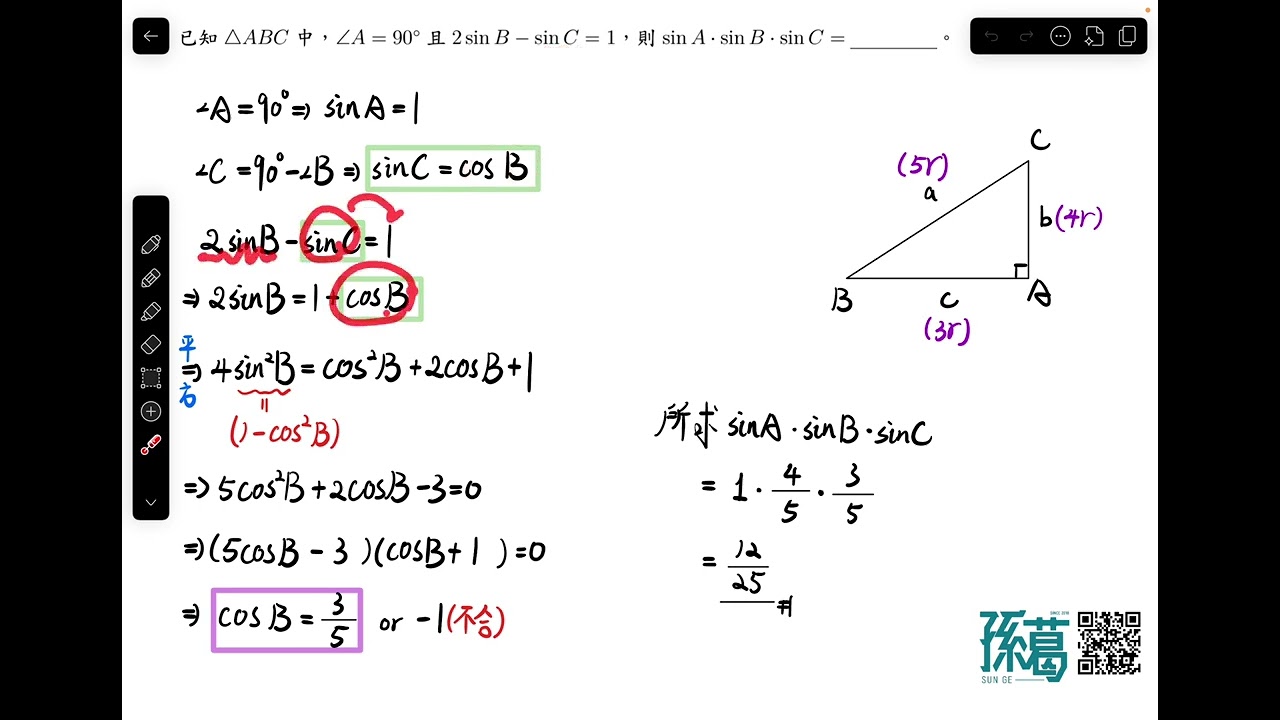 已知 △ABC 中，∠A = 90° 且 2 sin B − sin C = 1，則 sin A · sin B · sin C = ________。
∠A = 90° ⇒ sin A = 1
∠C = 90° − ∠B ⇒ sin C = cos B
2 sin B − sin C = 1
⇒ 2 sin B = 1 + cos B
平方
⇒ 4 sin²B = cos²B + 2cos B + 1
=
(1 − cos²B)
⇒ 5cos²B + 2cos B − 3 = 0
⇒ (5cos B − 3)(cos B + 1) = 0
⇒ cos B = 3/5 or −1 (不合)
C
(5r)
a
b (4r)
B
c
A
(3r)
所求 sin A · sin B · sin C
= 1 · 4/5 · 3/5
= 12/25
孫葛
SINCE 2018
SUN GE